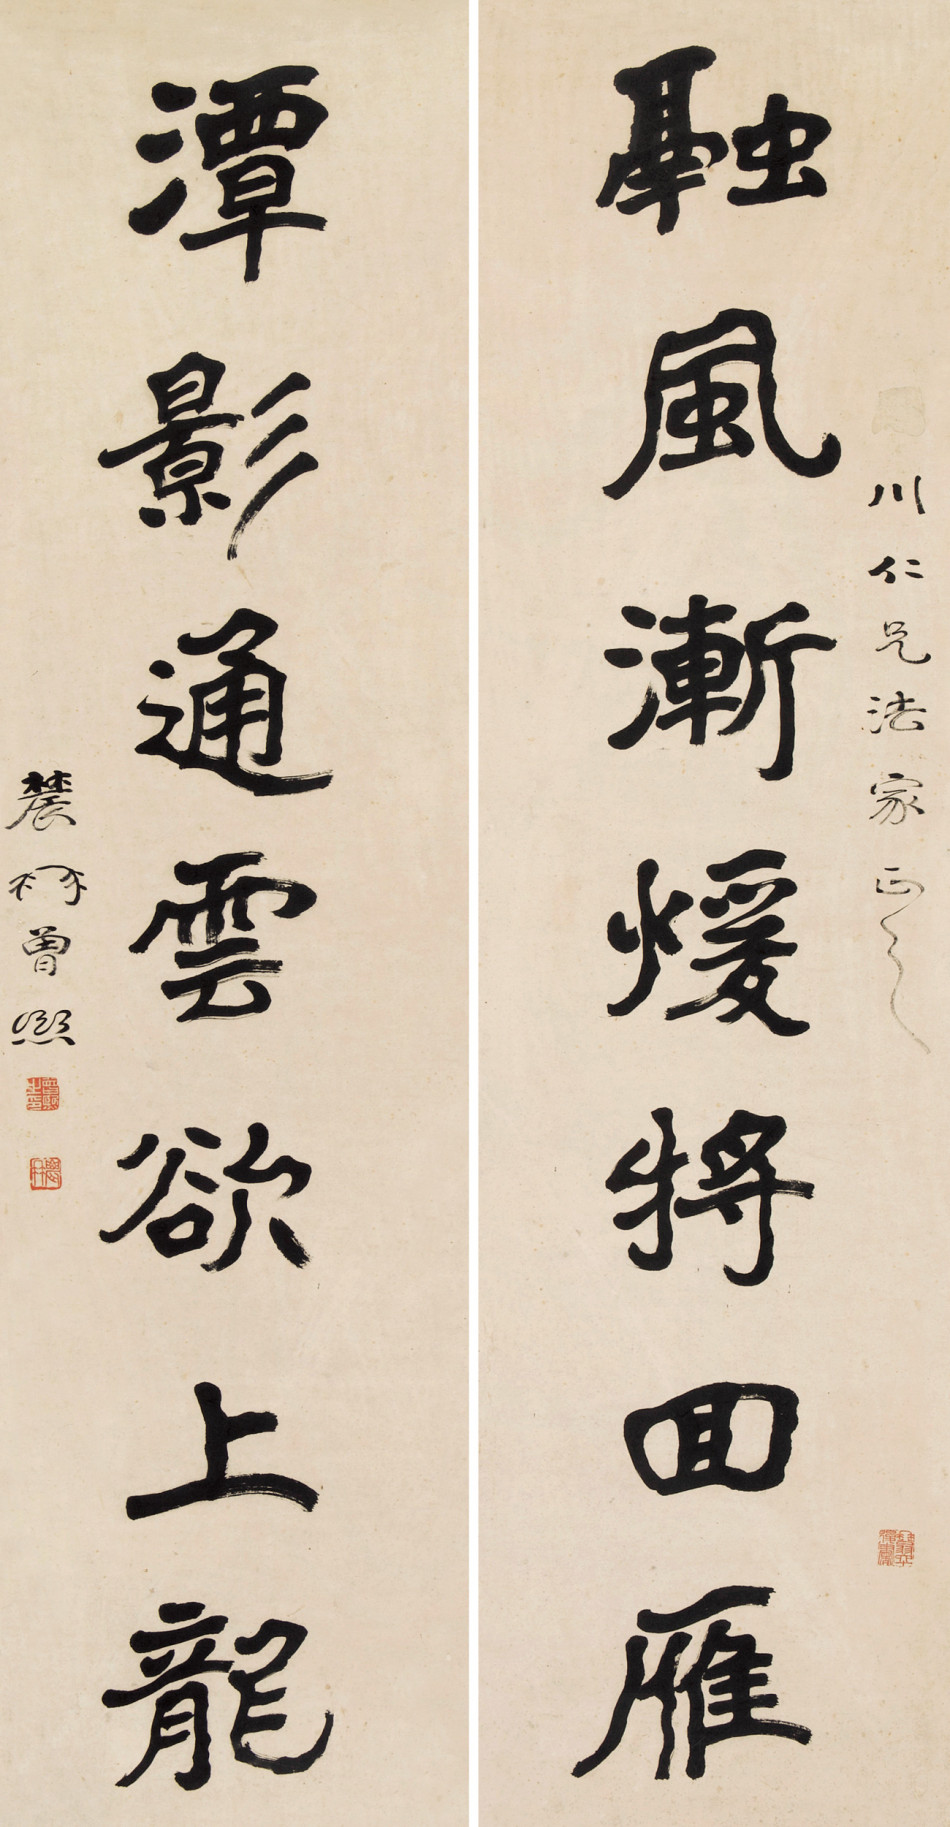 川仁兄法家正之
融風漸煖將回雁
潭影通雲欲上龍
農髯曾熙